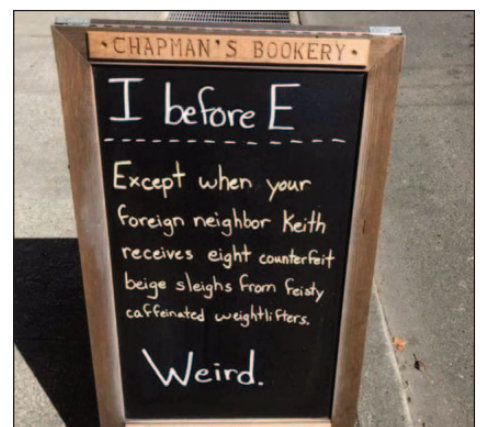 • CHAPMAN'S BOOKERY •
I before E
Except when your
foreign neighbor Keith
receives eight counterfeit
beige sleighs from feisty
caffeinated weightlifters.
Weird.